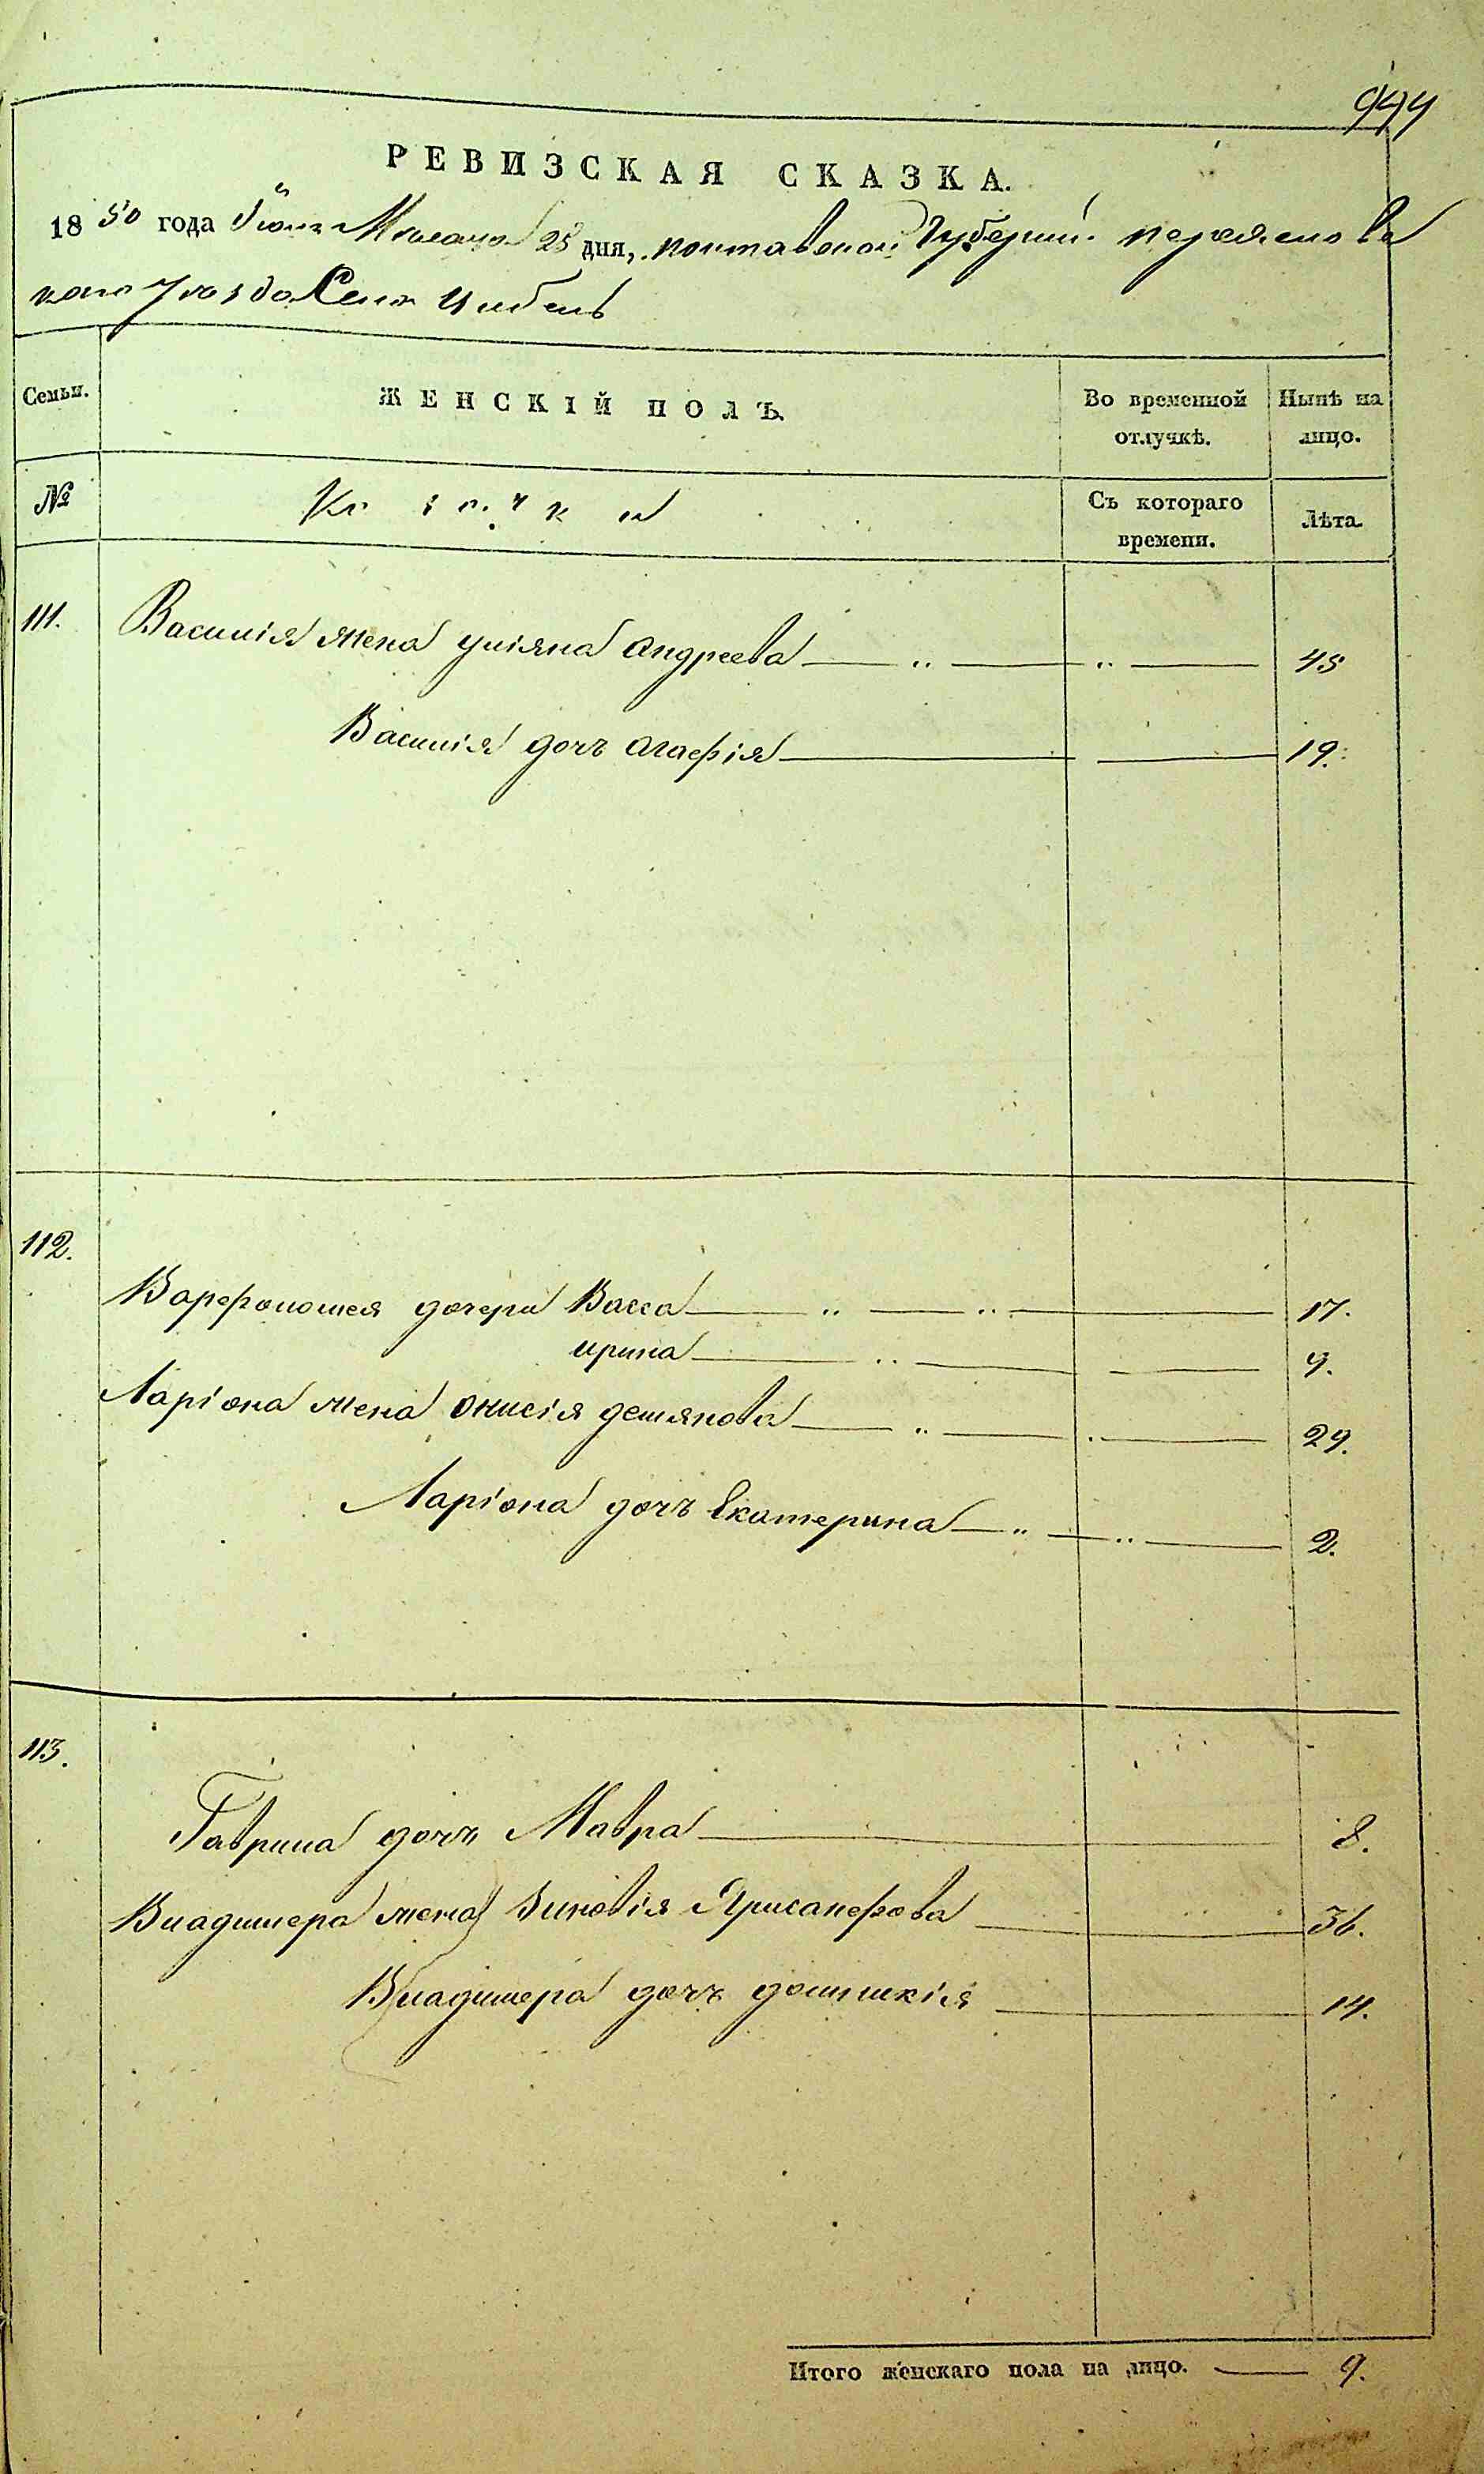 944
РЕВИЗСКАЯ СКАЗКА.
1850 года Июня Месяца 25 дня, полтавской Губернии переяслова
кого Уезда Села Цибель
Семьи. ЖЕНСКІЙ ПОЛЪ. Во временной отлучкѣ. Нынѣ на лицо.
№ Козачки Съ котораго времени. Лѣта.
111. Василія жена уліяна андреева 45
Василія дочь агафія 19.
112.
Варфоломея дочери Васса 17.
ирина 9.
Ларіона жена онисія демянова 29.
Ларіона дочь Екатерина 2.
113.
Гаврила дочь Мавра 8.
Владимера жена Зиновія Хрисанфова 36.
Владимера дочь домникія 14.
Итого женскаго пола на лицо. 9.